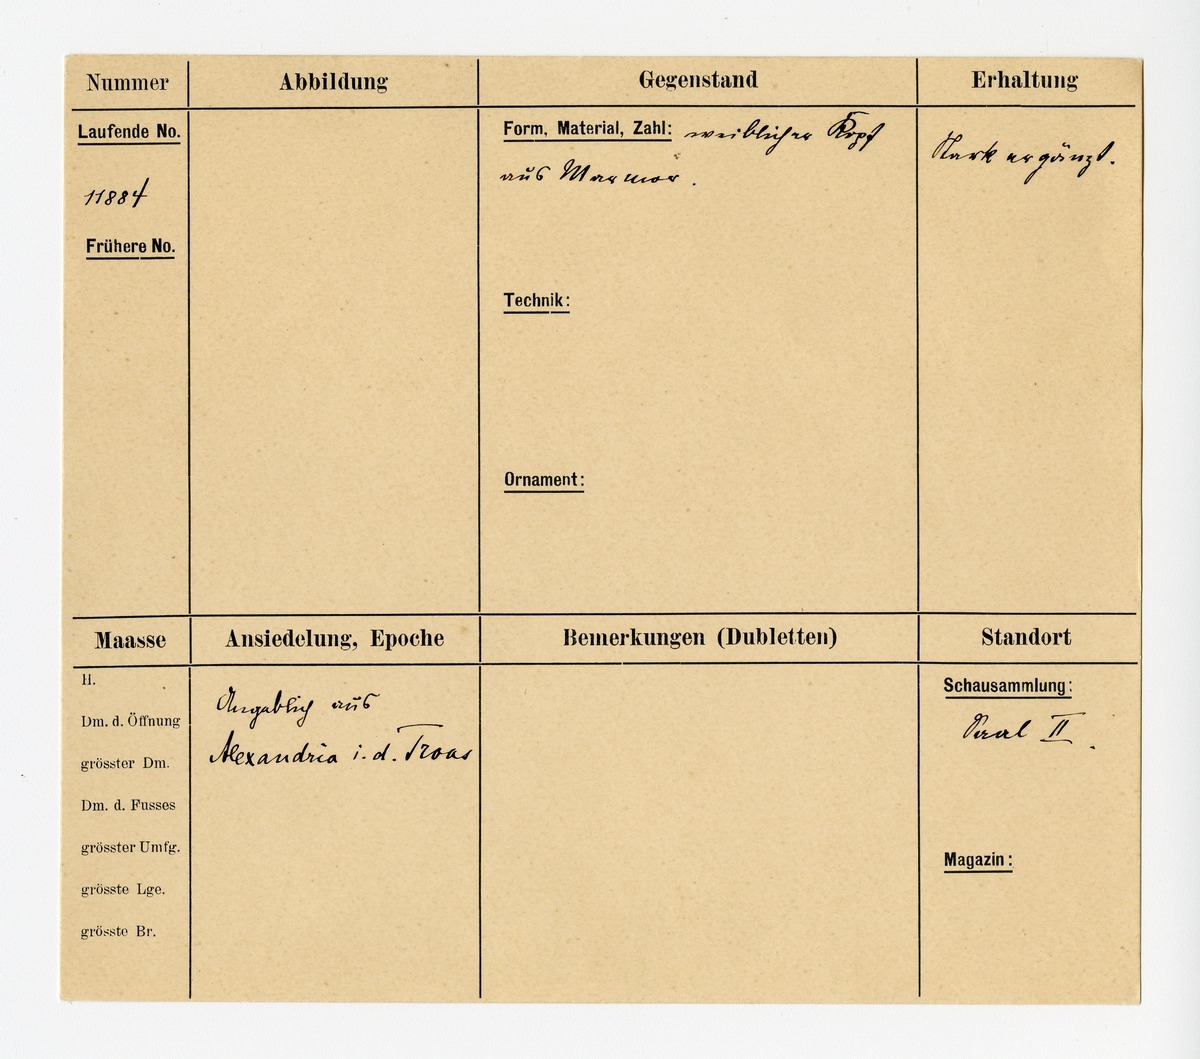 Nummer
Abbildung
Gegenstand
Erhaltung
Laufende No.
11884
Frühere No.
Form, Material, Zahl: weiblicher Kopf
aus Marmor.
Technik:
Ornament:
Stark ergänzt.
Maasse
Ansiedelung, Epoche
Bemerkungen (Dubletten)
Standort
H.
Dm. d. Öffnung
grösster Dm.
Dm. d. Fusses
grösster Umfg.
grösste Lge.
grösste Br.
Angeblich aus
Alexandria i. d. Troas
Schausammlung:
Saal II.
Magazin: